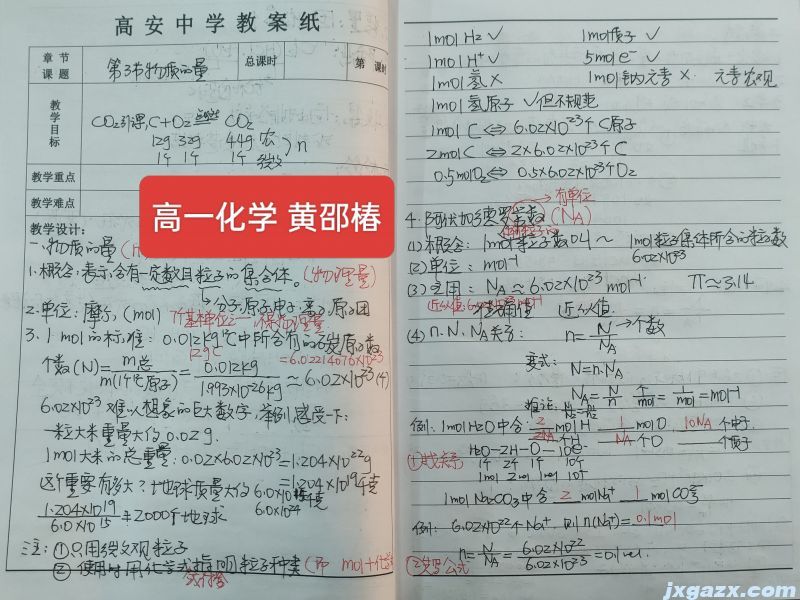 高安中学教案纸
章节
课题
第3节物质的量
总课时
第 课时
教学目标
CO₂引课,C+O₂ 点燃 CO₂
12g 32g 44g 宏
1个 1个 1个 微 )n
教学重点
教学难点
高一化学 黄邵椿
教学设计:
一.物质的量(n
1.概念:表示含有一定数目粒子的集合体。(物理量)
2.单位:摩尔,(mol)
3. 1mol的标准:0.012kg ¹²C中所含有的碳原子数
12g C
=6.02214076×10²³
个数(N)= m总 / m(1个¹²C原子) = 0.012kg / 1.993×10⁻²⁶kg ≈6.02×10²³(个)
6.02×10²³难以想象的巨大数字,举例,感受一下:
一粒大米重量大约0.02g.
1mol大米的总重量:0.02×6.02×10²³=1.204×10²²g
=1.204×10¹⁹千克
这个重要有多大?地球质量大约
6.0×10²⁴
1.204×10¹⁹ / 6.0×10¹⁵ ≑2000个地球
注:①只用微观粒子
②使用时用化学式指明粒子种类(即 mol+化学
1mol H₂ √
1mol质子 √
1mol H⁺ √
5mol e⁻ √
1mol氢 ×
1mol钠元素 × 元素宏观
1mol氢原子 √但不规范
1mol C ⇔ 6.02×10²³个C原子
2mol C ⇔ 2×6.02×10²³个C
0.5molO₂⇔ 0.5×6.02×10²³个O₂
有单位
4.阿伏加德罗常数(NA)
(1)概念:1mol粒子数叫~ 1mol粒子集体所含的粒子数
6.02×10²³
(2)单位:mol⁻¹
(3)常用:NA≈6.02×10²³ mol⁻¹ π≈3.14
精确值 近似值
(4) n.N.NA关系: n= N / NA →个数
变式: N=n.NA
推论: NA= N / n 个 / mol = 1 / mol =mol⁻¹
例:1molH₂O中含 2 mol H 1 mol O 10NA 个中子
2NA 个H NA 个O 个质子
H₂O-2H-O-10e⁻
①比关系
1个 2个 1个 10个
1mol 2mol 1mol 10mol
1mol Na₂CO₃中含 2 molNa⁺ 1 molCO₃²⁻
例: 6.02×10²²个Na⁺ 则n(Na⁺)=0.1mol
n= N / NA = 6.02×10²² / 6.02×10²³ =0.1mol.
②公式
jxgazx.com